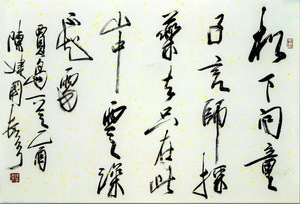 松下問童
子言師採
藥去只在此
山中雲深
不知處
賈島 乙酉
陳建國